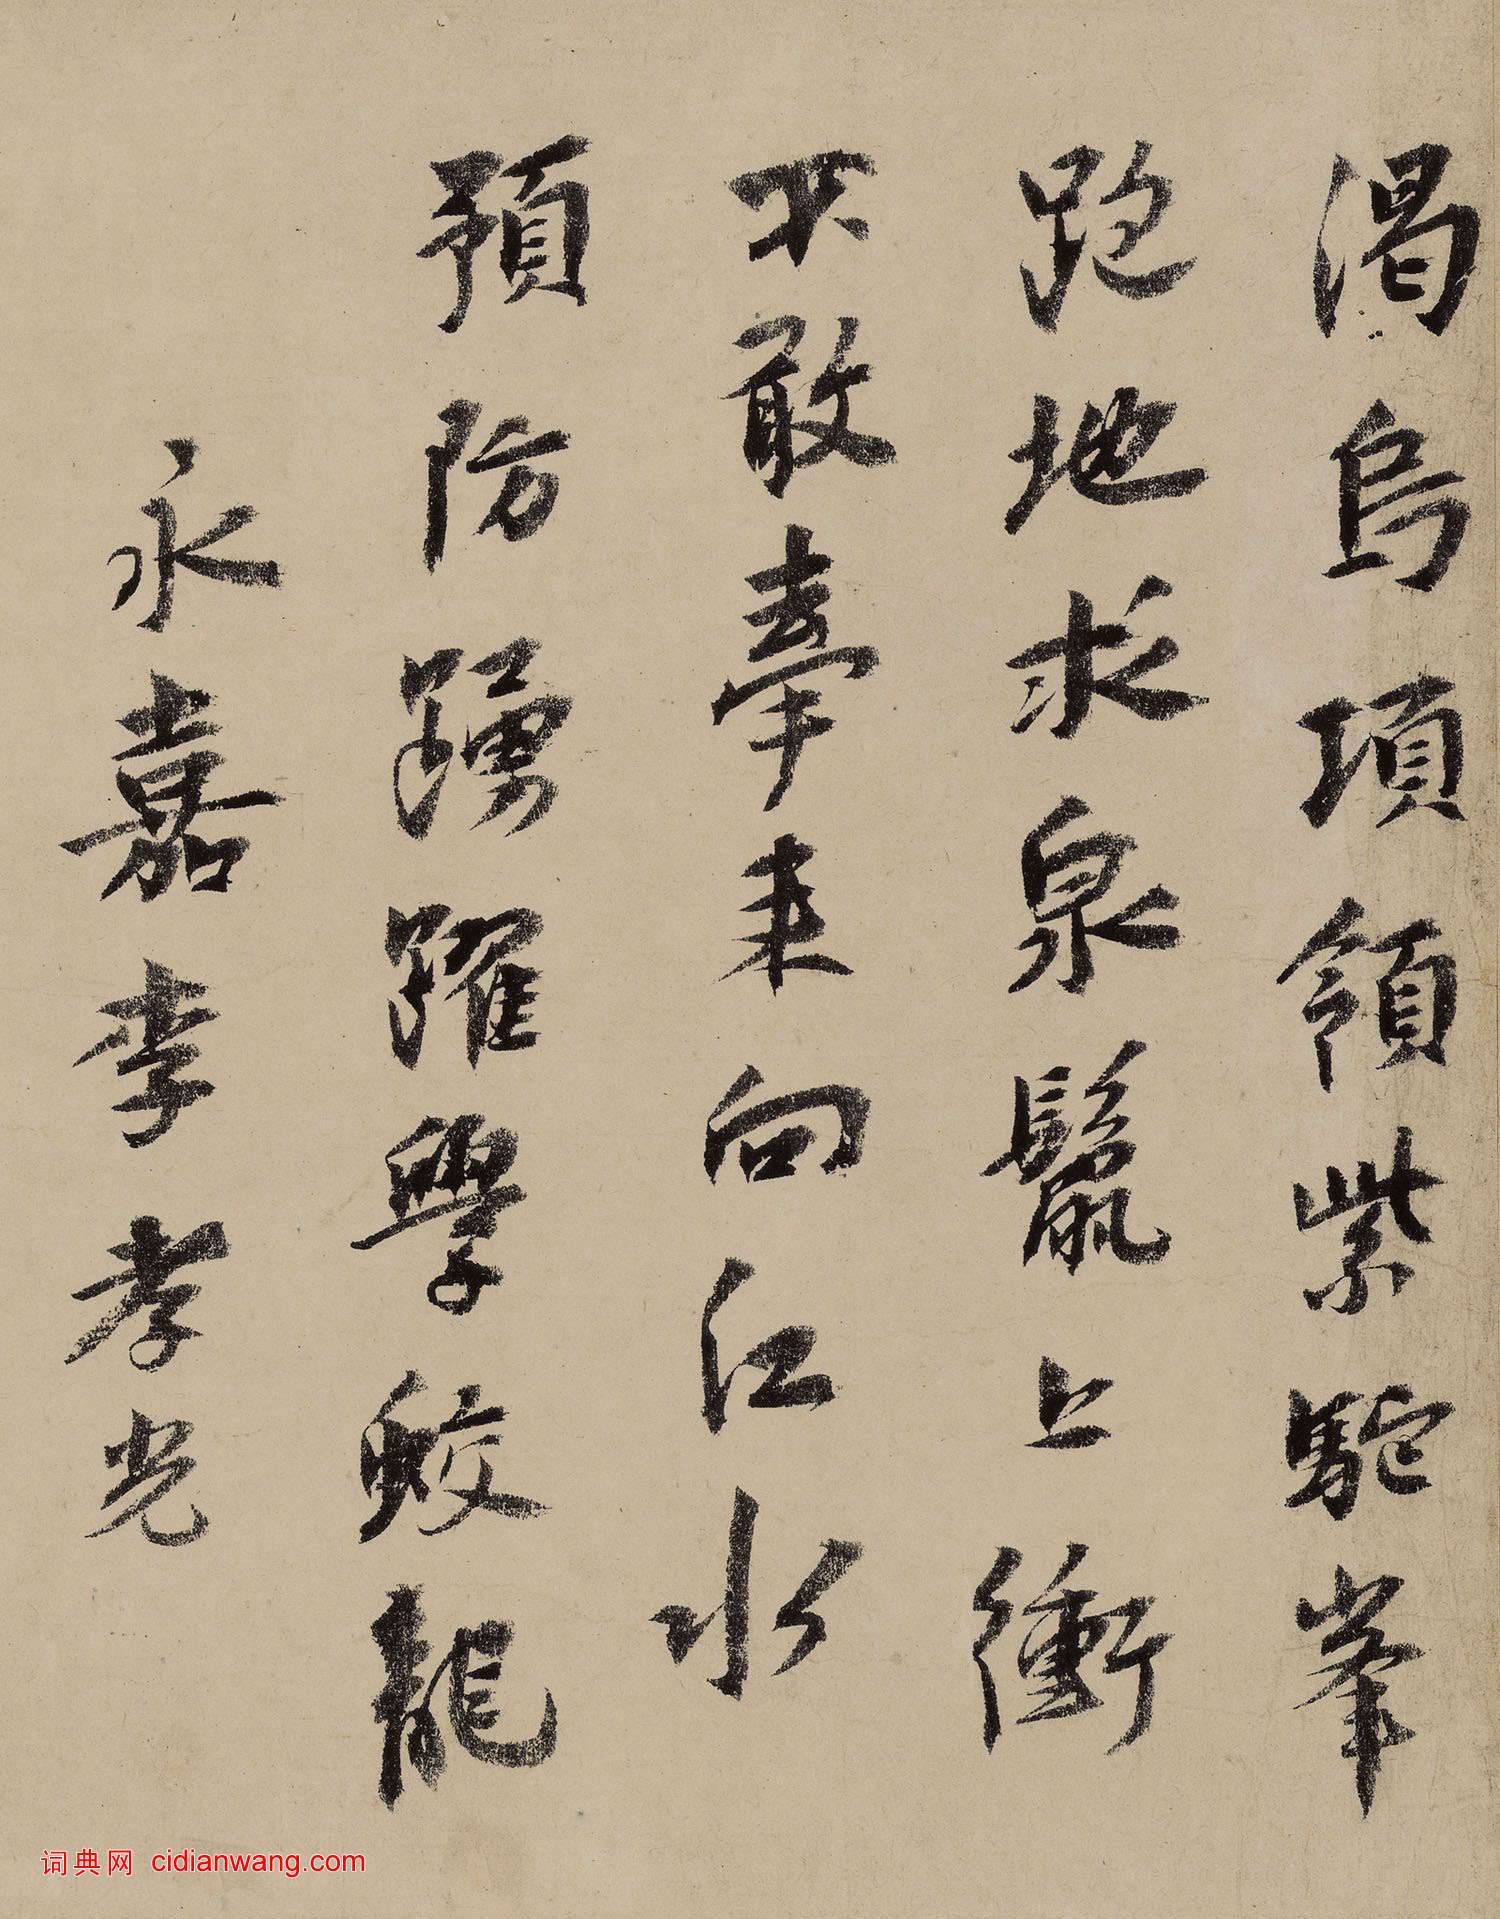 渴烏項領紫駝峯
跑地求泉鬣上衝
不敢牽来向江水
預防踴躍學鮫龍
永嘉李孝光
词典网 cidianwang.com